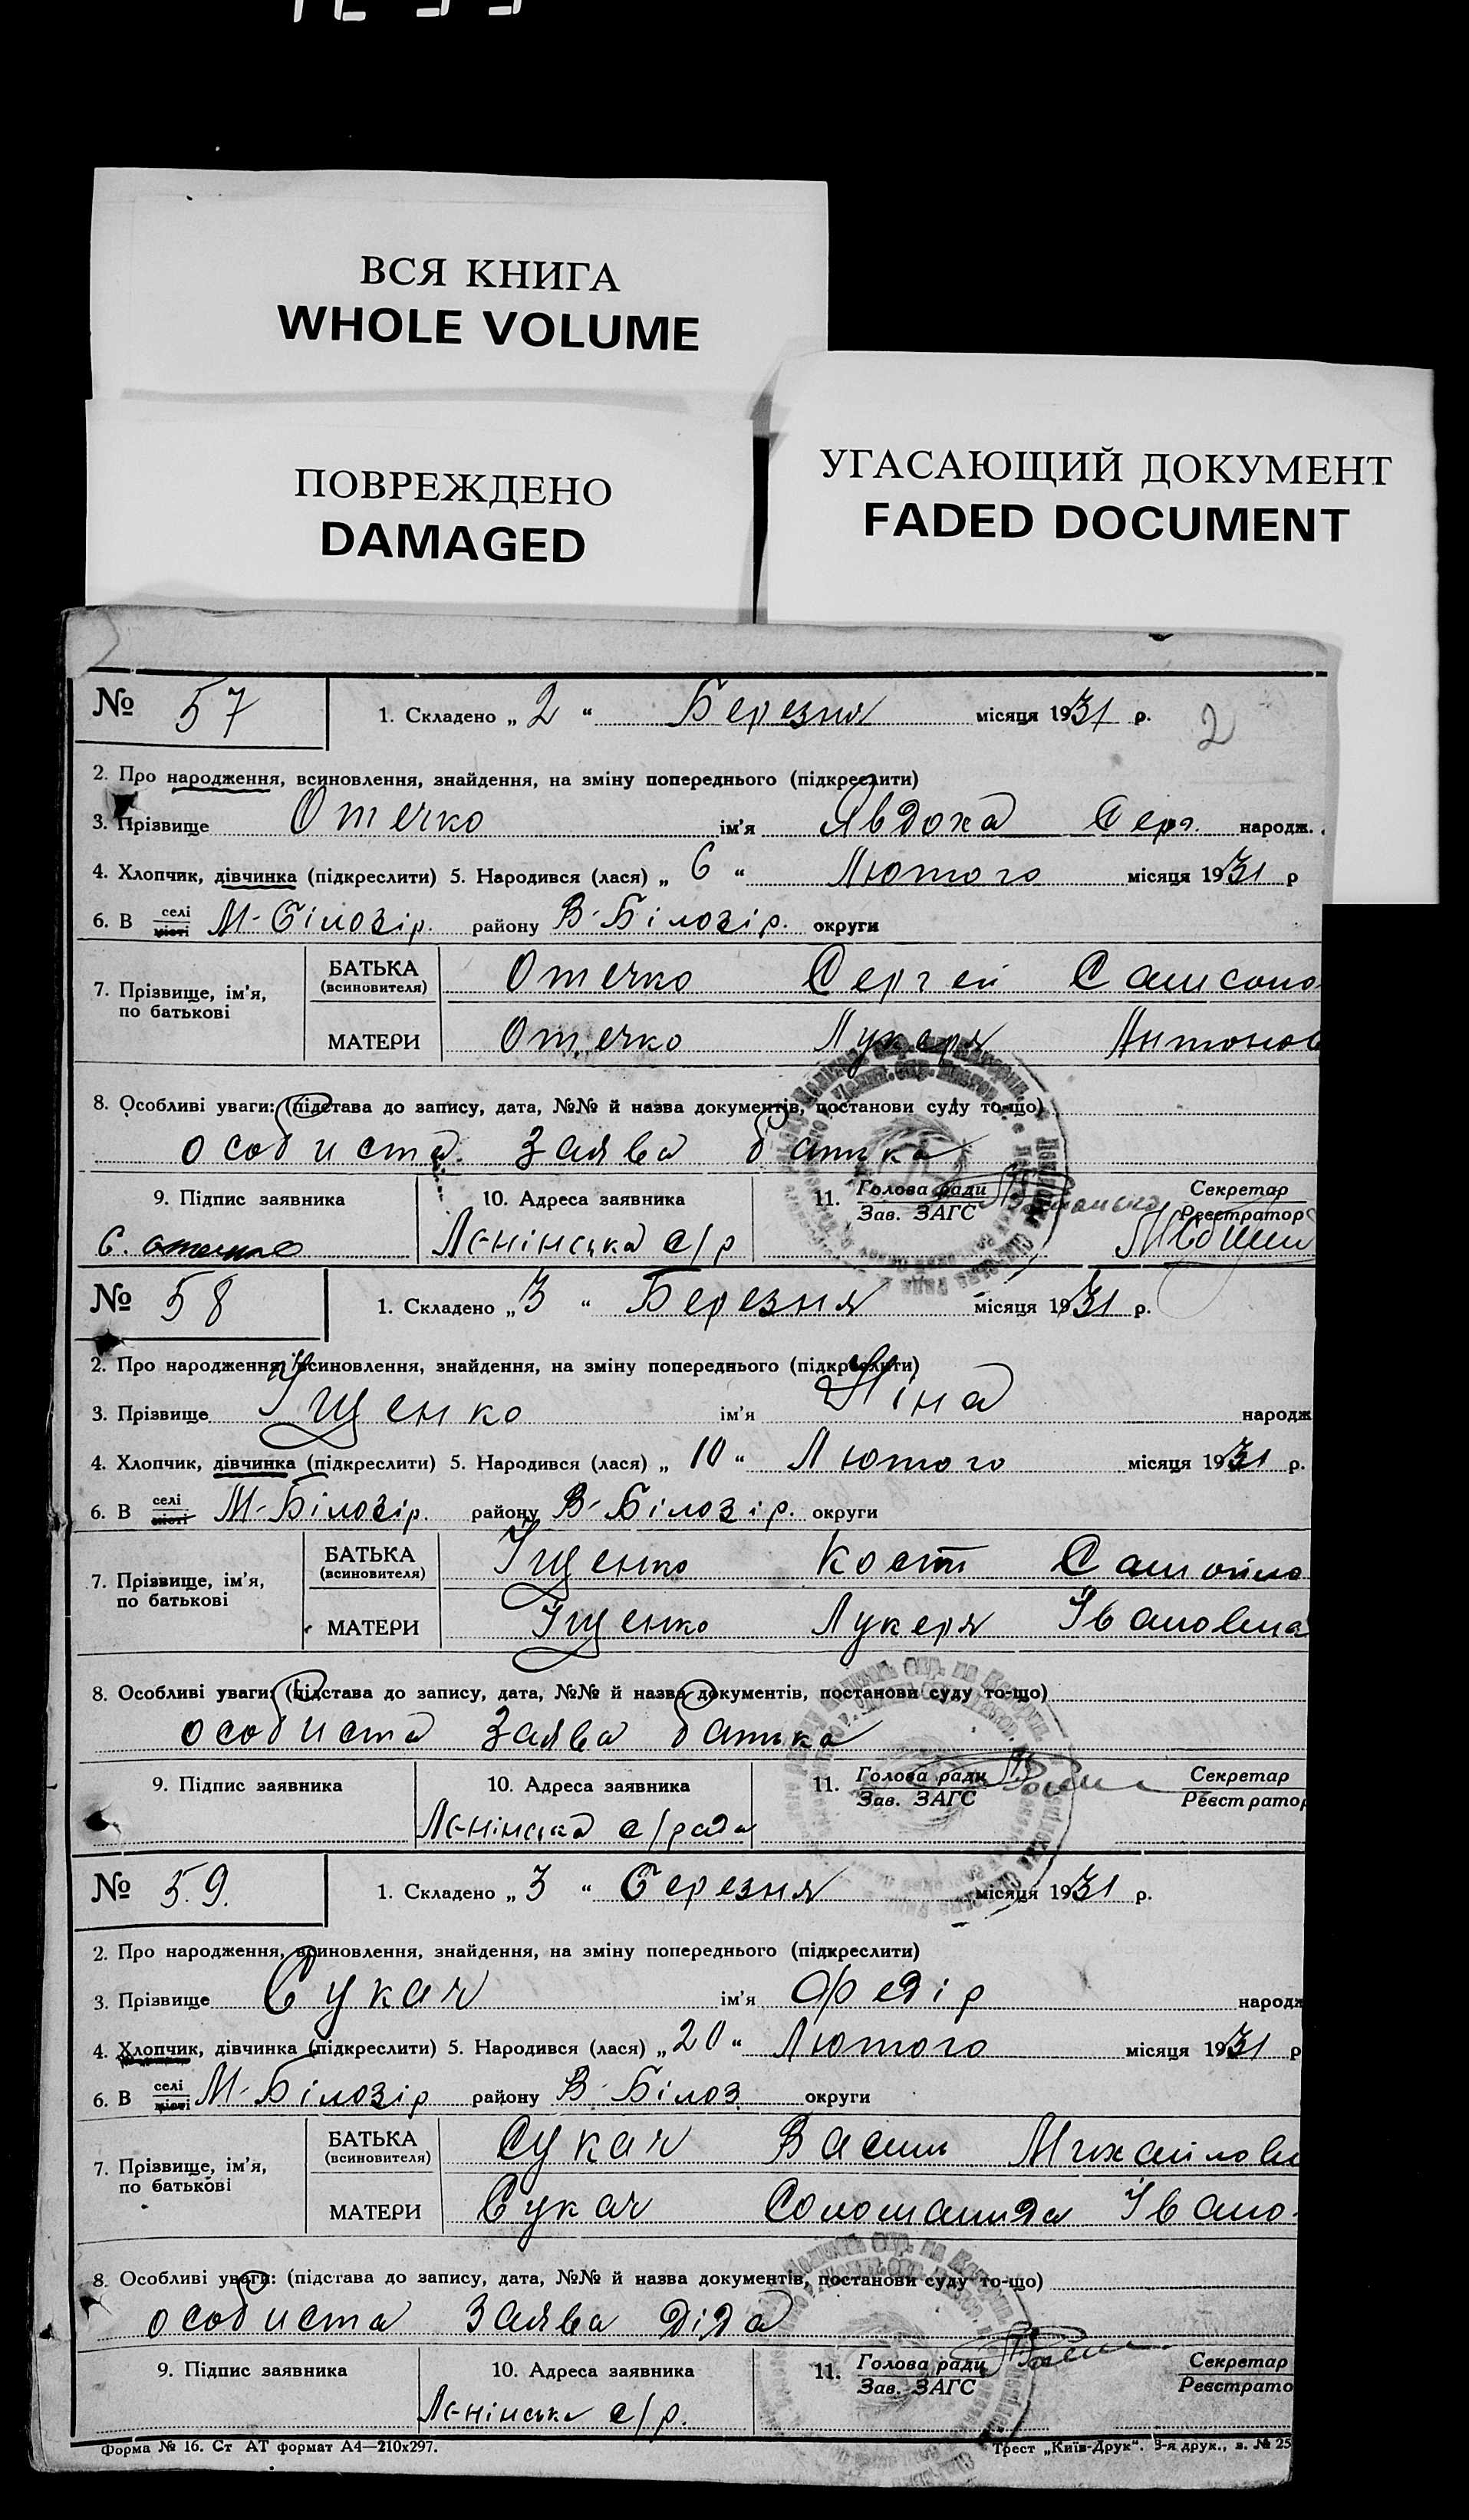 ВСЯ КНИГА
WHOLE VOLUME
ПОВРЕЖДЕНО
DAMAGED
УГАСАЮЩИЙ ДОКУМЕНТ
FADED DOCUMENT
№ 57 1. Складено „ 2 “ Березня місяця 1931 р. 2
2. Про народження, всиновлення, знайдення, на зміну попереднього (підкреслити)
3. Прізвище Отечко ім'я Явдоха Серг. народж.
4. Хлопчик, дівчинка (підкреслити) 5. Народився (лася) „ 6 “ Лютого місяця 1931 р
6. В селі місті М-Білозір. району В-Білозір. округи
7. Прізвище, ім'я, по батькові
БАТЬКА (всиновителя) Отечко Сергей Самсоно
МАТЕРИ Отечко Лукеря Антонов
8. Особливі уваги: (підстава до запису, дата, №№ й назва документів, постанови суду то-що)
особиста заява батька
9. Підпис заявника 10. Адреса заявника 11. Голова ради Зав. ЗАГС Секретар Реєстратор
С. Отечко Ленінська с/р
№ 58 1. Складено „ 3 “ Березня місяця 1931 р.
2. Про народження, всиновлення, знайдення, на зміну попереднього (підкреслити)
3. Прізвище Іщенко ім'я Ніна народж
4. Хлопчик, дівчинка (підкреслити) 5. Народився (лася) „ 10 “ Лютого місяця 1931 р.
6. В селі місті М-Білозір. району В-Білозір. округи
7. Прізвище, ім'я, по батькові
БАТЬКА (всиновителя) Іщенко Кость Самойло
МАТЕРИ Іщенко Лукеря Івановна
8. Особливі уваги: (підстава до запису, дата, №№ й назва документів, постанови суду то-що)
особиста заява батька
9. Підпис заявника 10. Адреса заявника 11. Голова ради Зав. ЗАГС Секретар Реєстратор
Ленінська с/рада
№ 59. 1. Складено „ 3 “ Березня місяця 1931 р.
2. Про народження, всиновлення, знайдення, на зміну попереднього (підкреслити)
3. Прізвище Сукач ім'я Федір народж
4. Хлопчик, дівчинка (підкреслити) 5. Народився (лася) „ 20 “ Лютого місяця 1931 р
6. В селі місті М-Білозір району В-Білоз. округи
7. Прізвище, ім'я, по батькові
БАТЬКА (всиновителя) Сукач Василь Михайлови
МАТЕРИ Сукач Соломанида Івано-
8. Особливі уваги: (підстава до запису, дата, №№ й назва документів, постанови суду то-що)
особиста заява діда
9. Підпис заявника 10. Адреса заявника 11. Голова ради Зав. ЗАГС Секретар Реєстрато
Ленінська с/р.
Форма № 16. Ст АТ формат А4—210x297. Трест „Київ-Друк“. 3-я друк., з. № 25